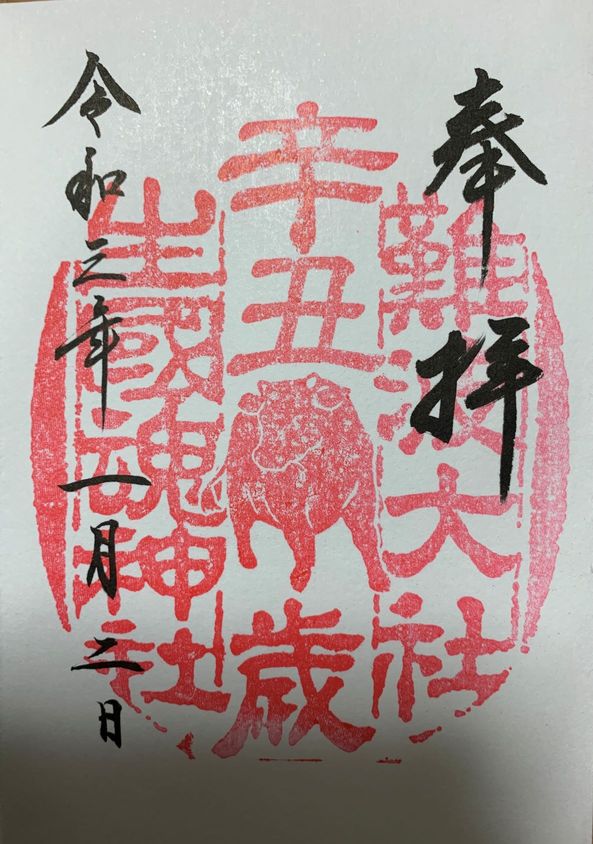 奉拝
難波大社
辛丑
歳
生國魂神社
令和三年一月二日